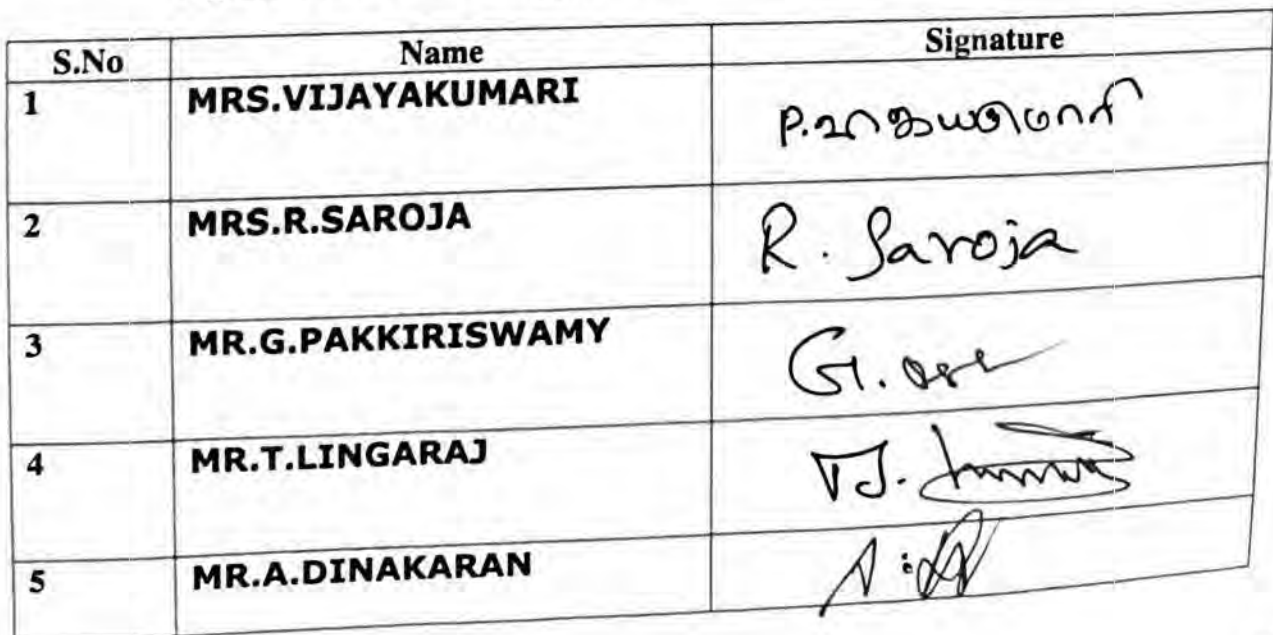 S.No Name Signature
1 MRS.VIJAYAKUMARI P.
2 MRS.R.SAROJA R. Saroja
3 MR.G.PAKKIRISWAMY G.
4 MR.T.LINGARAJ
5 MR.A.DINAKARAN